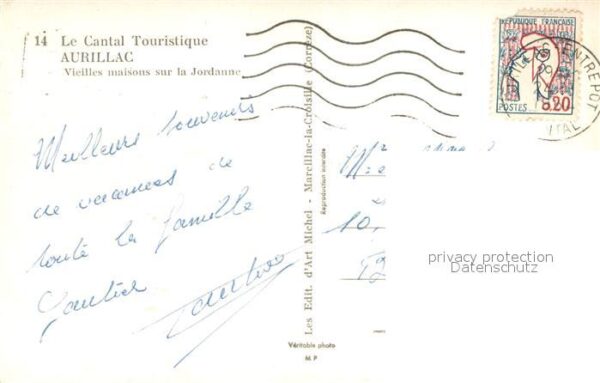 14 Le Cantal Touristique
AURILLAC
Vieilles maisons sur la Jordanne
Meilleurs souvenirs
de vacances de
toute la famille
Gautier
Les Edit. d'Art Michel - Marcillac-la-Croisille (Corrèze)
Reproduction interdite
Véritable photo
M P
REPUBLIQUE FRANÇAISE
POSTES 0,20
ENTREPOT
29
10,
privacy protection
Datenschutz